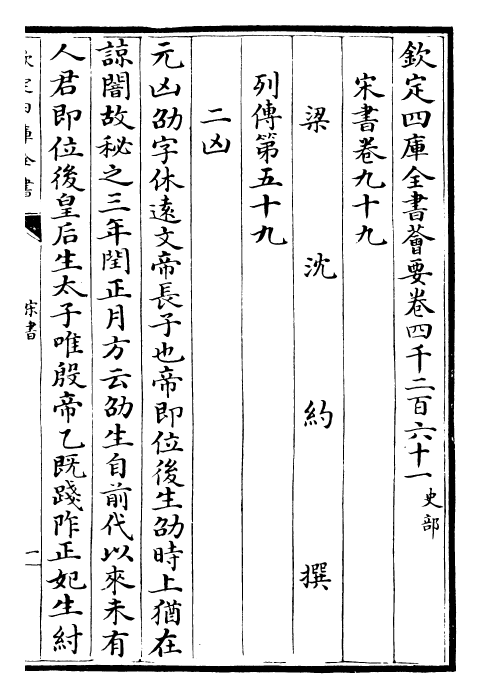 欽定四庫全書薈要卷四千二百六十一史部
宋書卷九十九
梁沈約撰
列傳第五十九
二凶
元凶劭字休遠文帝長子也帝即位後生劭時上猶在
諒闇故秘之三年閏正月方云劭生自前代以來未有
人君即位後皇后生太子唯殷帝乙既踐阼正妃生紂
欽定四庫全書
宋書
一